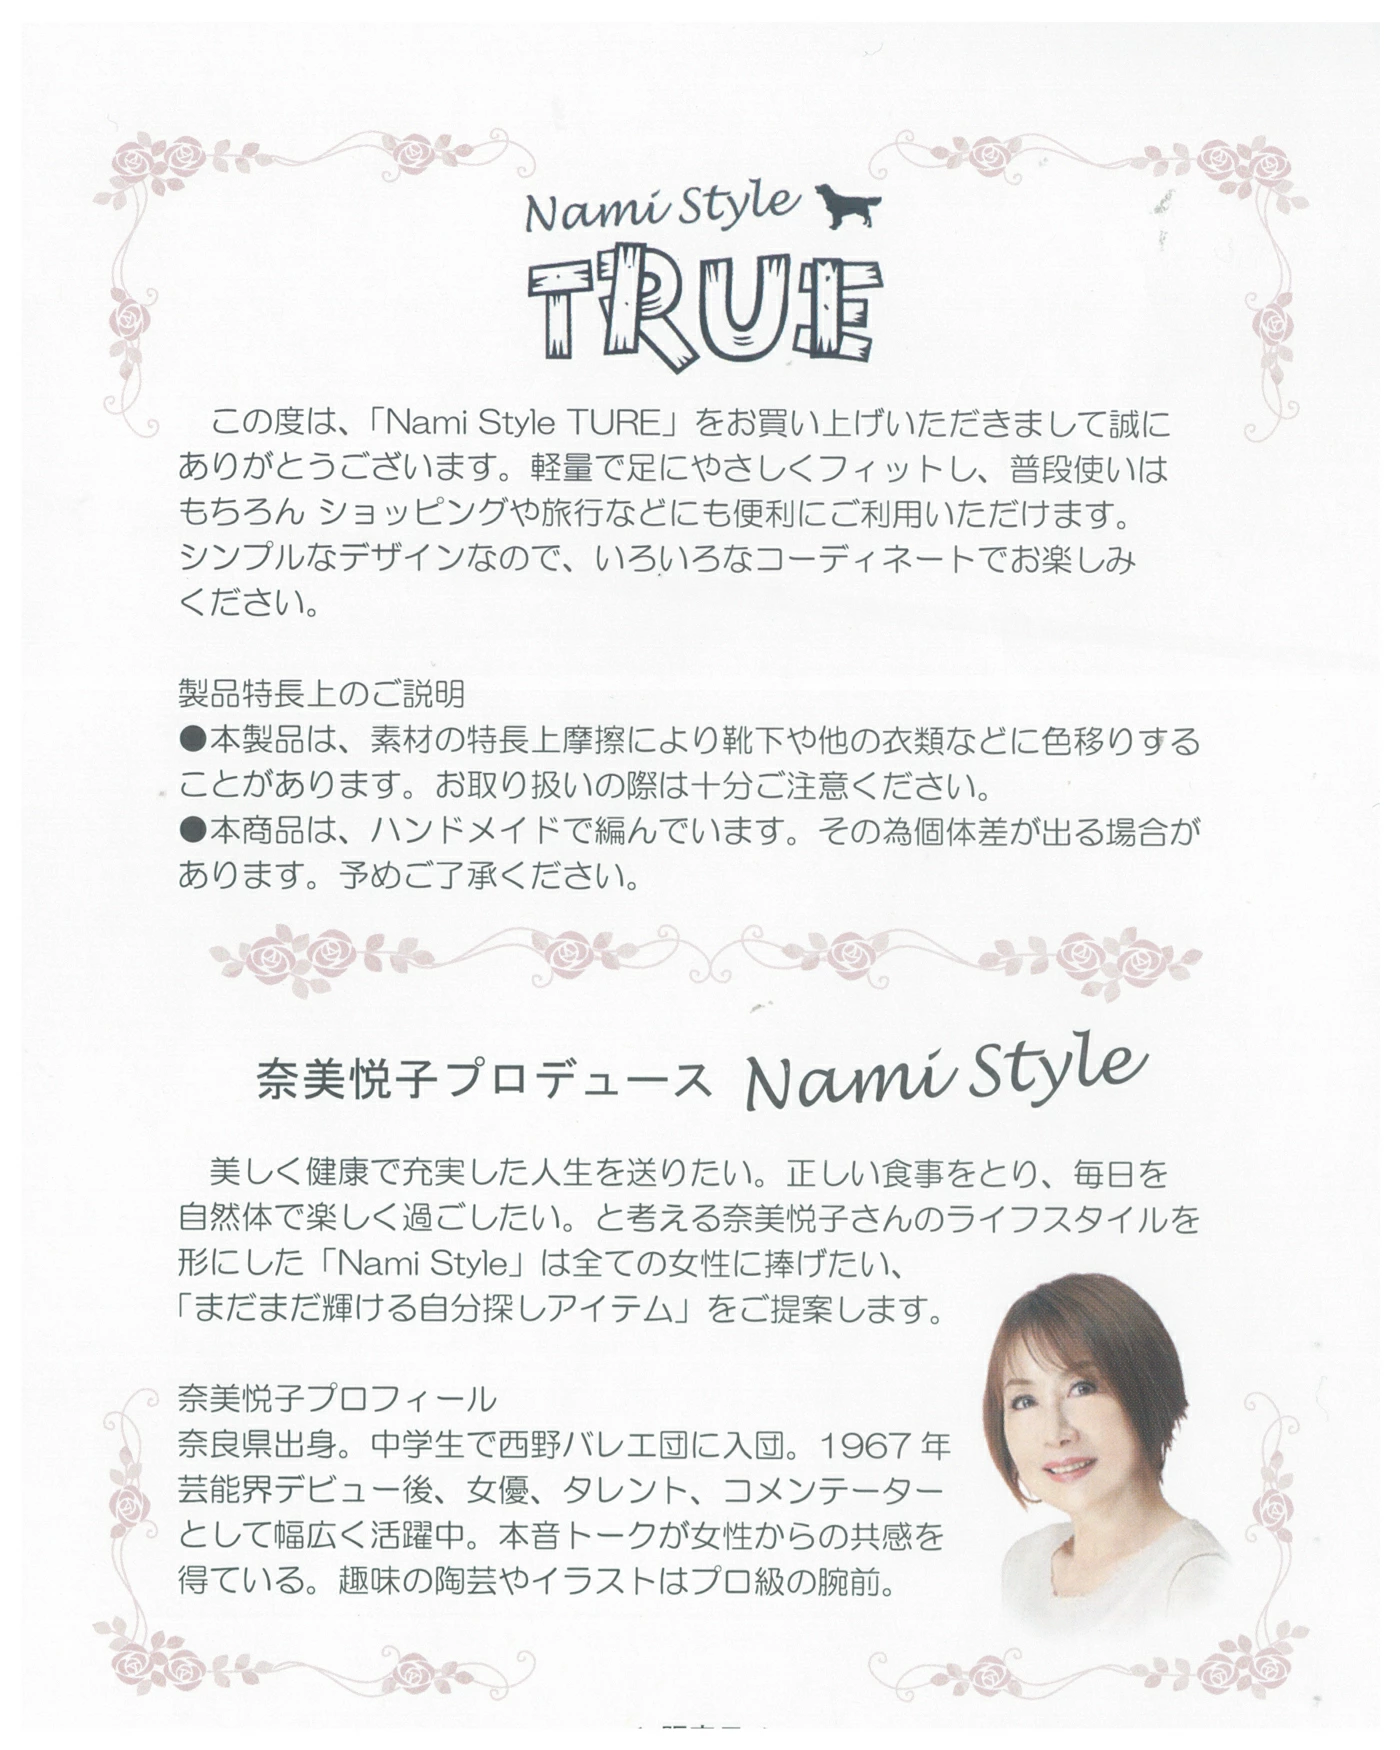 Nami Style
TRUE
この度は、「Nami Style TURE」をお買い上げいただきまして誠に
ありがとうございます。軽量で足にやさしくフィットし、普段使いは
もちろん ショッピングや旅行などにも便利にご利用いただけます。
シンプルなデザインなので、いろいろなコーディネートでお楽しみ
ください。
製品特長上のご説明
●本製品は、素材の特長上摩擦により靴下や他の衣類などに色移りする
ことがあります。お取り扱いの際は十分ご注意ください。
●本商品は、ハンドメイドで編んでいます。その為個体差が出る場合が
あります。予めご了承ください。
奈美悦子プロデュース Nami Style
美しく健康で充実した人生を送りたい。正しい食事をとり、毎日を
自然体で楽しく過ごしたい。と考える奈美悦子さんのライフスタイルを
形にした「Nami Style」は全ての女性に捧げたい、
「まだまだ輝ける自分探しアイテム」をご提案します。
奈美悦子プロフィール
奈良県出身。中学生で西野バレエ団に入団。1967年
芸能界デビュー後、女優、タレント、コメンテーター
として幅広く活躍中。本音トークが女性からの共感を
得ている。趣味の陶芸やイラストはプロ級の腕前。